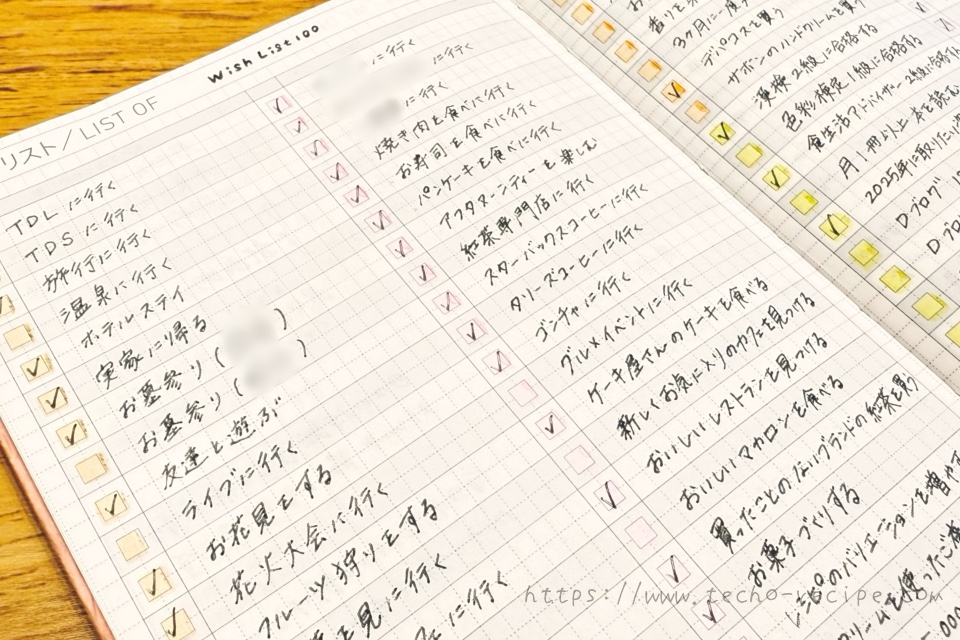 Wish List 100
リスト/LIST OF
TDLに行く
TDSに行く
旅行に行く
温泉に行く
ホテルステイ
実家に帰る
お墓参り( )
お墓参り( )
友達と遊ぶ
ライブに行く
お花見をする
花火大会に行く
フルーツ狩りをする
を見に行く
に行く
に行く
に行く
に行く
焼き肉を食べに行く
お寿司を食べに行く
パンケーキを食べに行く
アフタヌーンティーを楽しむ
紅茶専門店に行く
スターバックスコーヒーに行く
タリーズコーヒーに行く
ゴンチャに行く
グルメイベントに行く
ケーキ屋さんのケーキを食べる
新しくお気に入りのカフェを見つける
おいしいレストランを見つける
おいしいマカロンを食べる
買ったことのないブランドの紅茶を買う
お菓子づくりする
レシピのバリエーションを増やす
を使ったご
3ヶ月に一度
デパコスを買う
サボンのハンドクリームを買う
漢検2級に合格する
色彩検定1級に合格する
食生活アドバイザー2級に合格する
月1冊以上本を読む
2025年に取りたい
Dブログ
Dブロ
https://www.techo-recipe.com